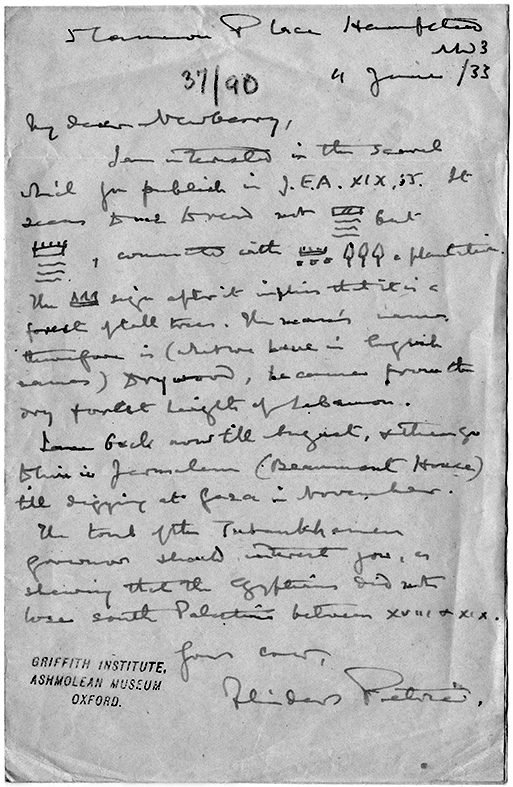 5 Cannon Place Hampstead
NW3
37/90
4 June /33
My dear Newberry,
I am interested in the scarab
which you publish in J.E.A. XIX, 55. It
seems to me to read not but
, connected with a plantation.
The sign after it implies that it is a
forest of tall trees. The man's name
therefore is (what we have in English
names) Drywood, because from the
dry forest height of Lebanon.
I am back now till August, & then go
to live in Jerusalem (Beaumont House)
till digging at Gaza in November.
The tomb of the Tutankhamen
governor should interest you, as
shewing that the Egyptians did not
lose south Palestine between XVIII & XIX.
Yours
Flinders Petrie.
GRIFFITH INSTITUTE,
ASHMOLEAN MUSEUM
OXFORD.